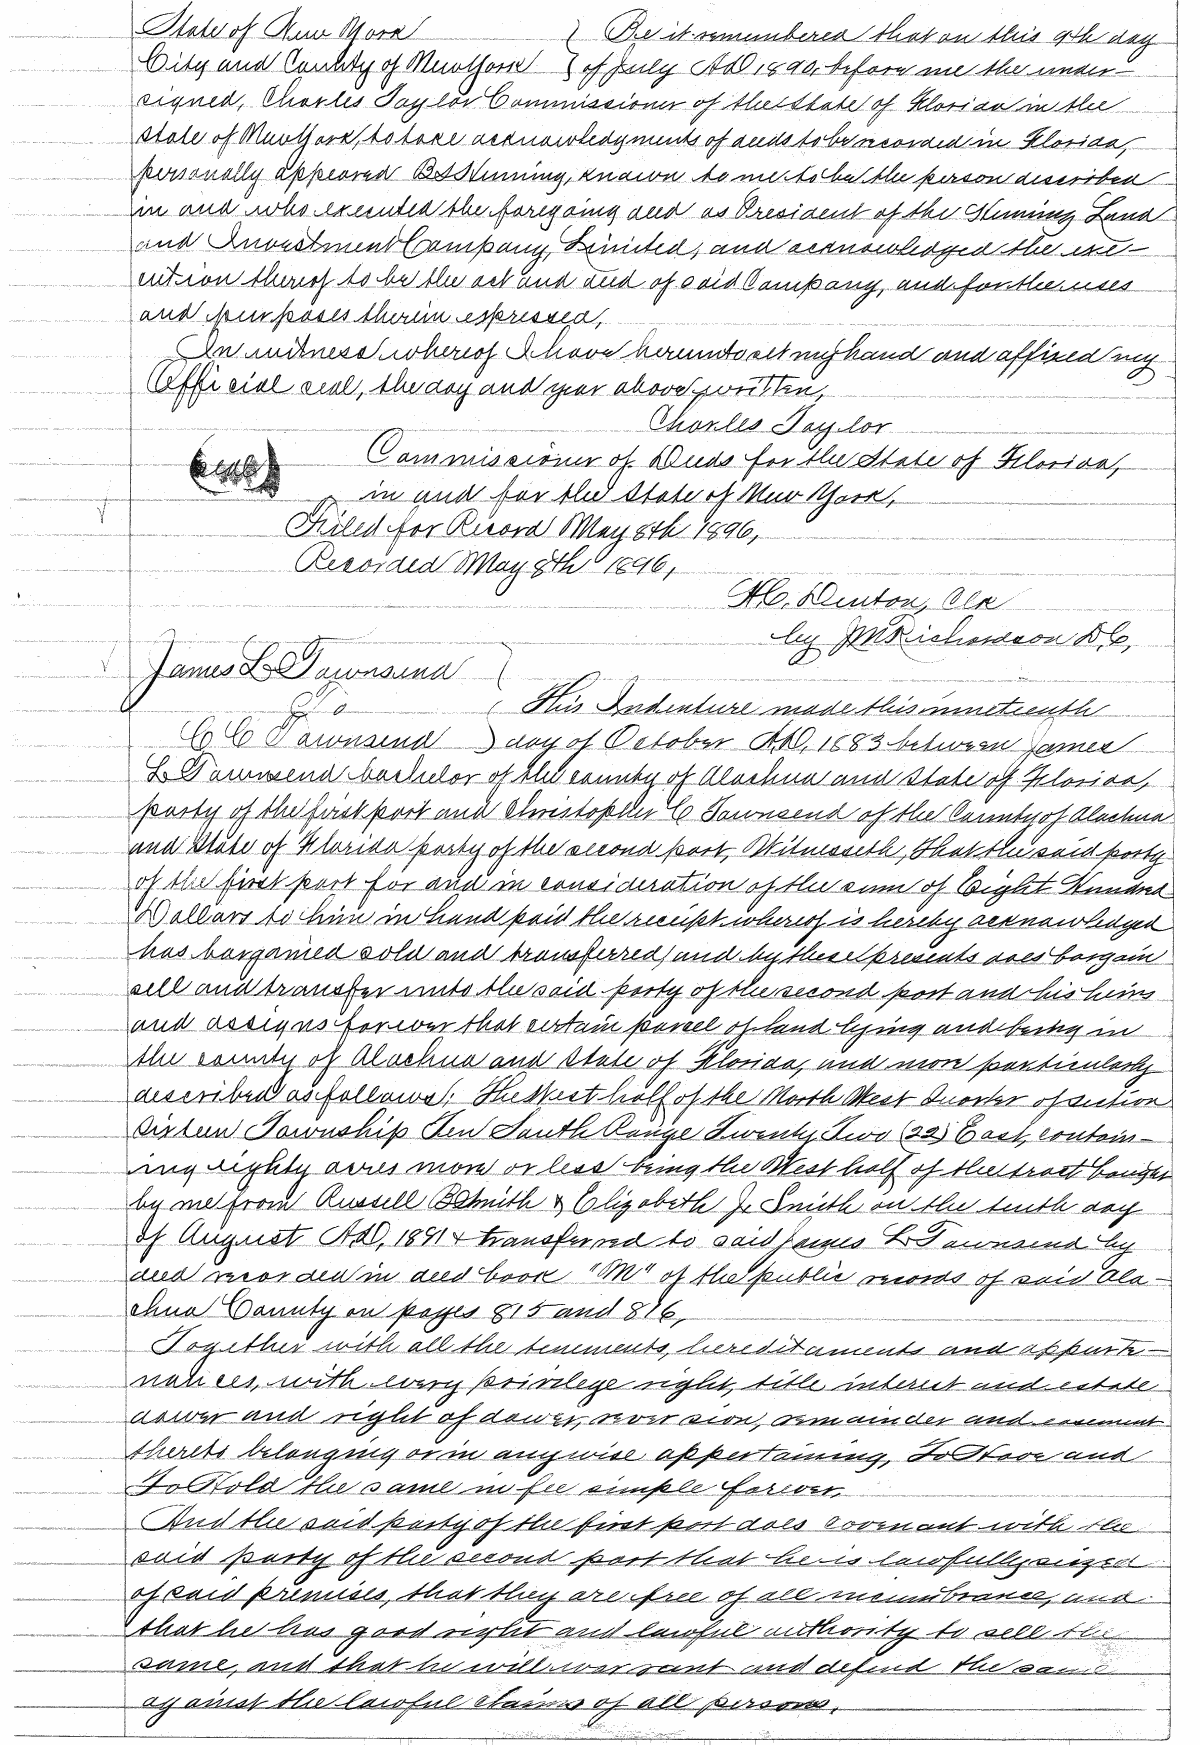 State of New York } Be it remembered that on this 9th day
City and County of New York } of July AD 1890, before me the under-
signed, Charles Taylor Commissioner of the State of Florida in the
State of New York, to take acknowledgments of deeds to be recorded in Florida,
personally appeared B S Henning, known to me to be the person described
in and who executed the foregoing deed as President of the Henning Land
and Investment Company, Limited, and acknowledged the exe-
cution thereof to be the act and deed of said Company, and for the uses
and purposes therein expressed,
In witness whereof I have hereunto set my hand and affixed my
Official seal, the day and year above written,
Charles Taylor
Commissioner of Deeds for the State of Florida,
in and for the State of New York,
Filed for Record May 8th 1896,
Recorded May 8th 1896,
H.C. Denton, Clk
by J M Richardson D.C,
James L Townsend }
To } This Indenture made this nineteenth
C C Townsend } day of October AD, 1883 between James
L Townsend bachelor of the county of Alachua and State of Florida,
party of the first part and Christopher C Townsend of the County of Alachua
and State of Florida party of the second part, Witnesseth, that the said party
of the first part for and in consideration of the sum of Eight Hundred
Dollars to him in hand paid the receipt whereof is hereby acknowledged
has bargained sold and transferred, and by these presents does bargain
sell and transfer unto the said party of the second part and his heirs
and assigns forever that certain parcel of land lying and being in
the county of Alachua and State of Florida, and more particularly
described as follows: The West half of the North West Quarter of section
Sixteen Township Ten South Range Twenty Two (22) East, contain-
ing eighty acres more or less being the West half of the tract bought
by me from Russell B Smith & Elizabeth J. Smith on the tenth day
of August AD, 1881 & transferred to said James L Townsend by
deed recorded in deed book "M" of the public records of said Ala-
chua County on pages 815 and 816,
Together with all the tenements, hereditaments and appurte-
nances, with every privilege right, title interest and estate
dower and right of dower, reversion, remainder and easement
thereto belonging or in anywise appertaining, To Have and
To Hold the same in fee simple forever,
And the said party of the first part does covenant with the
said party of the second part that he is lawfully siezed
of said premises, that they are free of all incumbrance, and
that he has good right and lawful authority to sell the
same, and that he will warrant and defend the same
against the lawful claims of all persons,